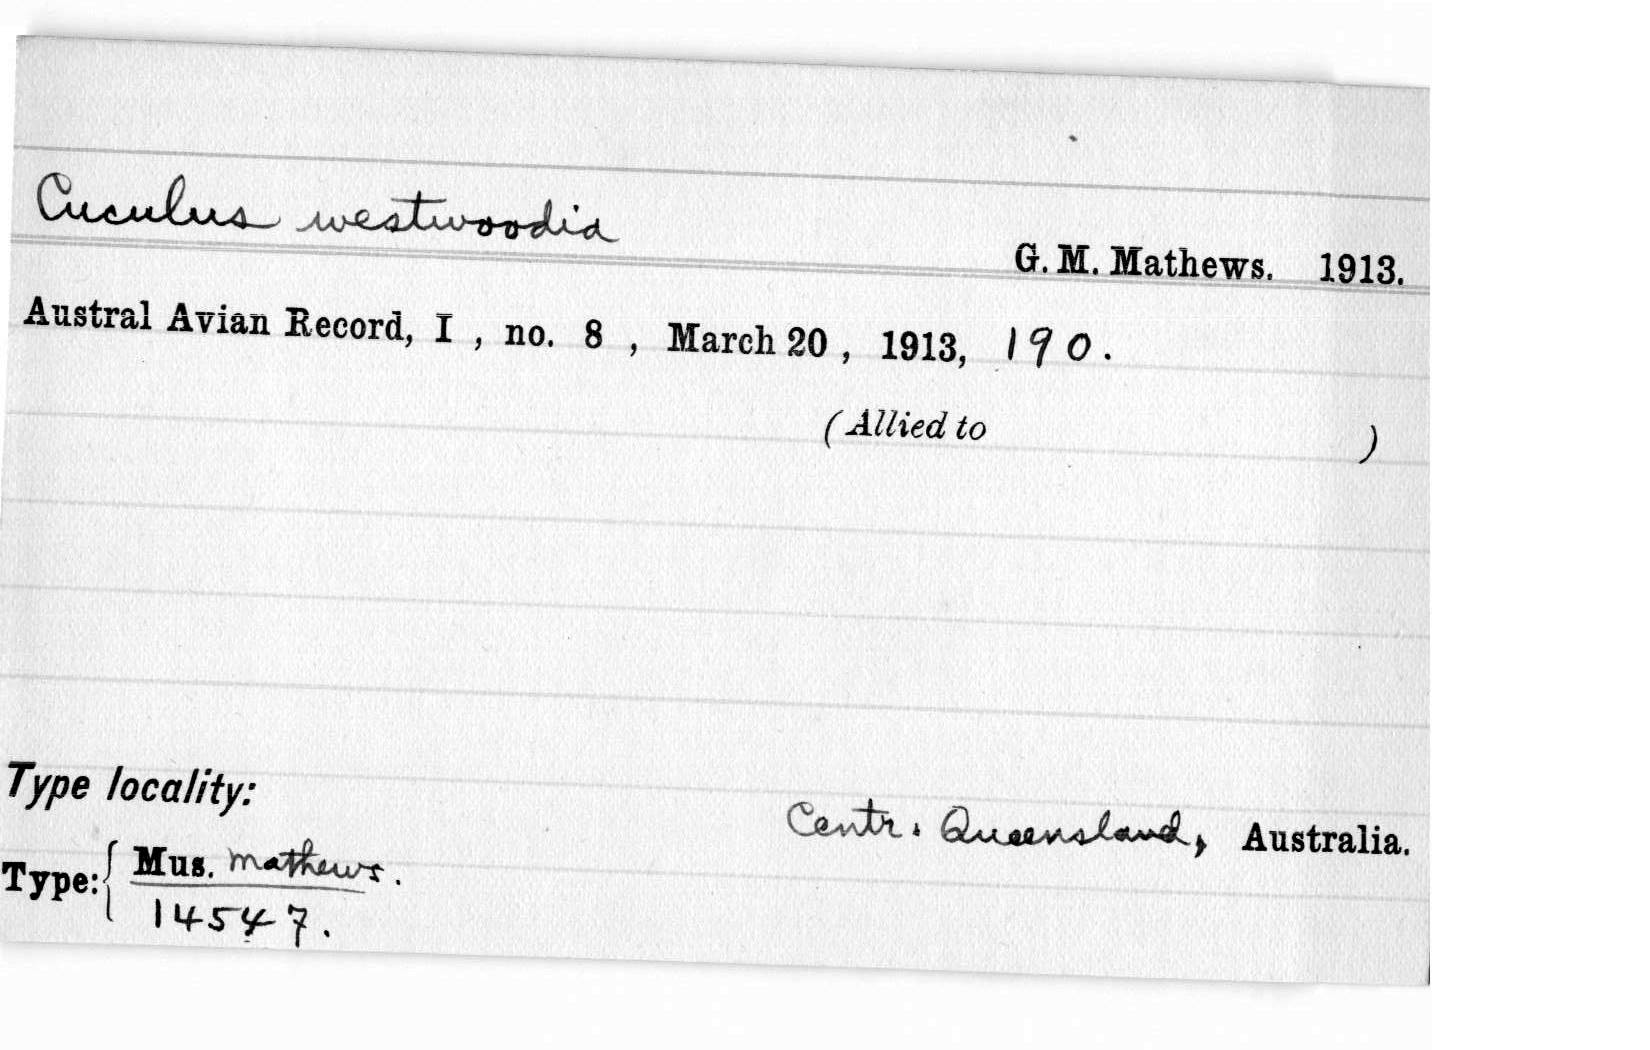 Cuculus westwoodia
G. M. Mathews. 1913.
Austral Avian Record, I , no. 8 , March 20 , 1913, 190.
(Allied to )
Type locality:
Centr. Queensland, Australia.
Type: { Mus. Mathews.
14547.